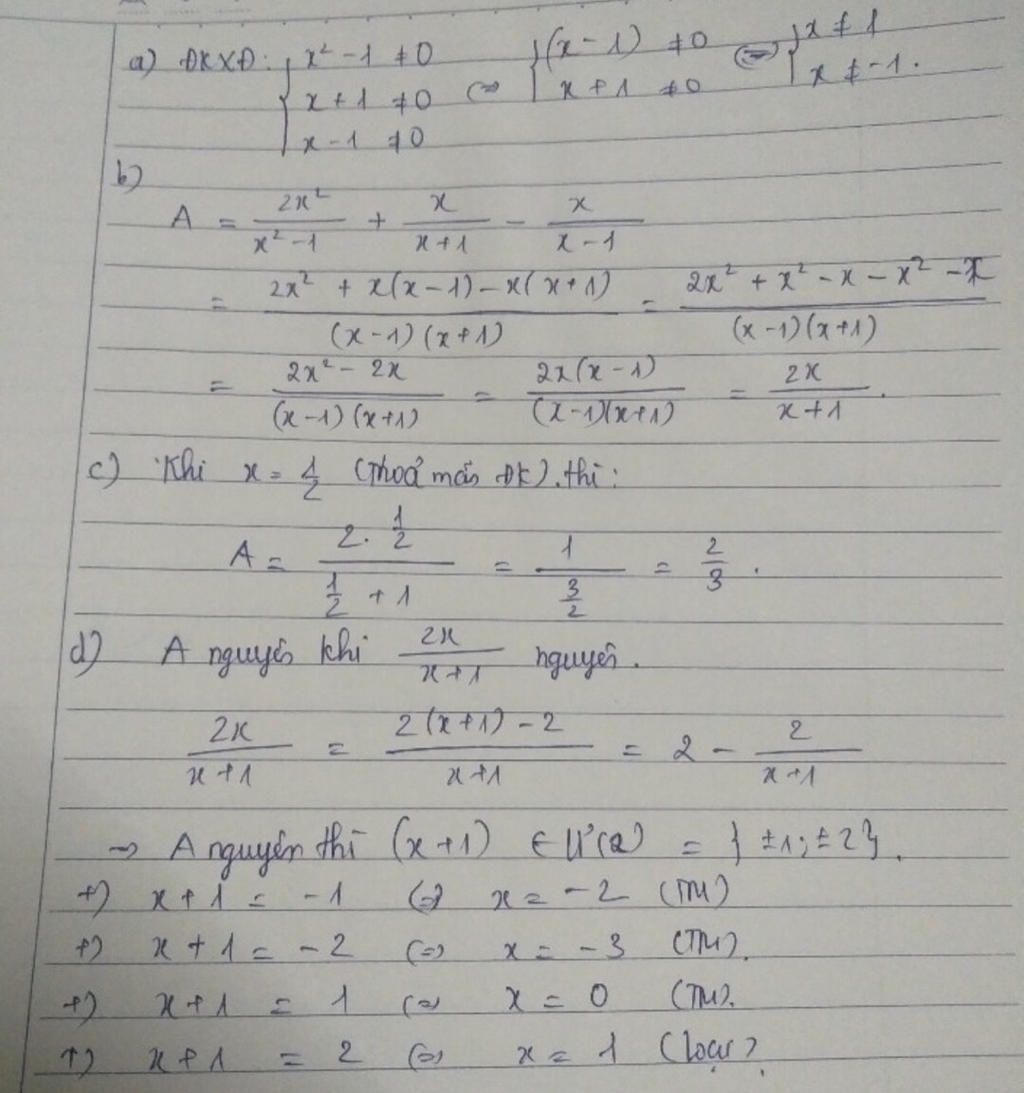 a) ĐKXĐ: { x² - 1 ≠ 0 ; x + 1 ≠ 0 ; x - 1 ≠ 0 ⇔ { (x - 1) ≠ 0 ; x + 1 ≠ 0 ⇔ { x ≠ 1 ; x ≠ -1.
b)
A = 2x²/(x² - 1) + x/(x + 1) - x/(x - 1)
= (2x² + x(x - 1) - x(x + 1))/((x - 1)(x + 1)) = (2x² + x² - x - x² - x)/((x - 1)(x + 1))
= (2x² - 2x)/((x - 1)(x + 1)) = 2x(x - 1)/((x - 1)(x + 1)) = 2x/(x + 1).
c) Khi x = 1/2 (Thoả mãn ĐK). thì:
A = (2 . 1/2)/(1/2 + 1) = 1/(3/2) = 2/3.
d) A nguyên khi 2x/(x + 1) nguyên.
2x/(x + 1) = (2(x + 1) - 2)/(x + 1) = 2 - 2/(x + 1)
→ A nguyên thì (x + 1) ∈ Ư(2) = { ±1; ±2}.
+) x + 1 = -1 ⇔ x = -2 (TM)
+) x + 1 = -2 ⇔ x = -3 (TM).
+) x + 1 = 1 ⇔ x = 0 (TM).
+) x + 1 = 2 ⇔ x = 1 (loại).